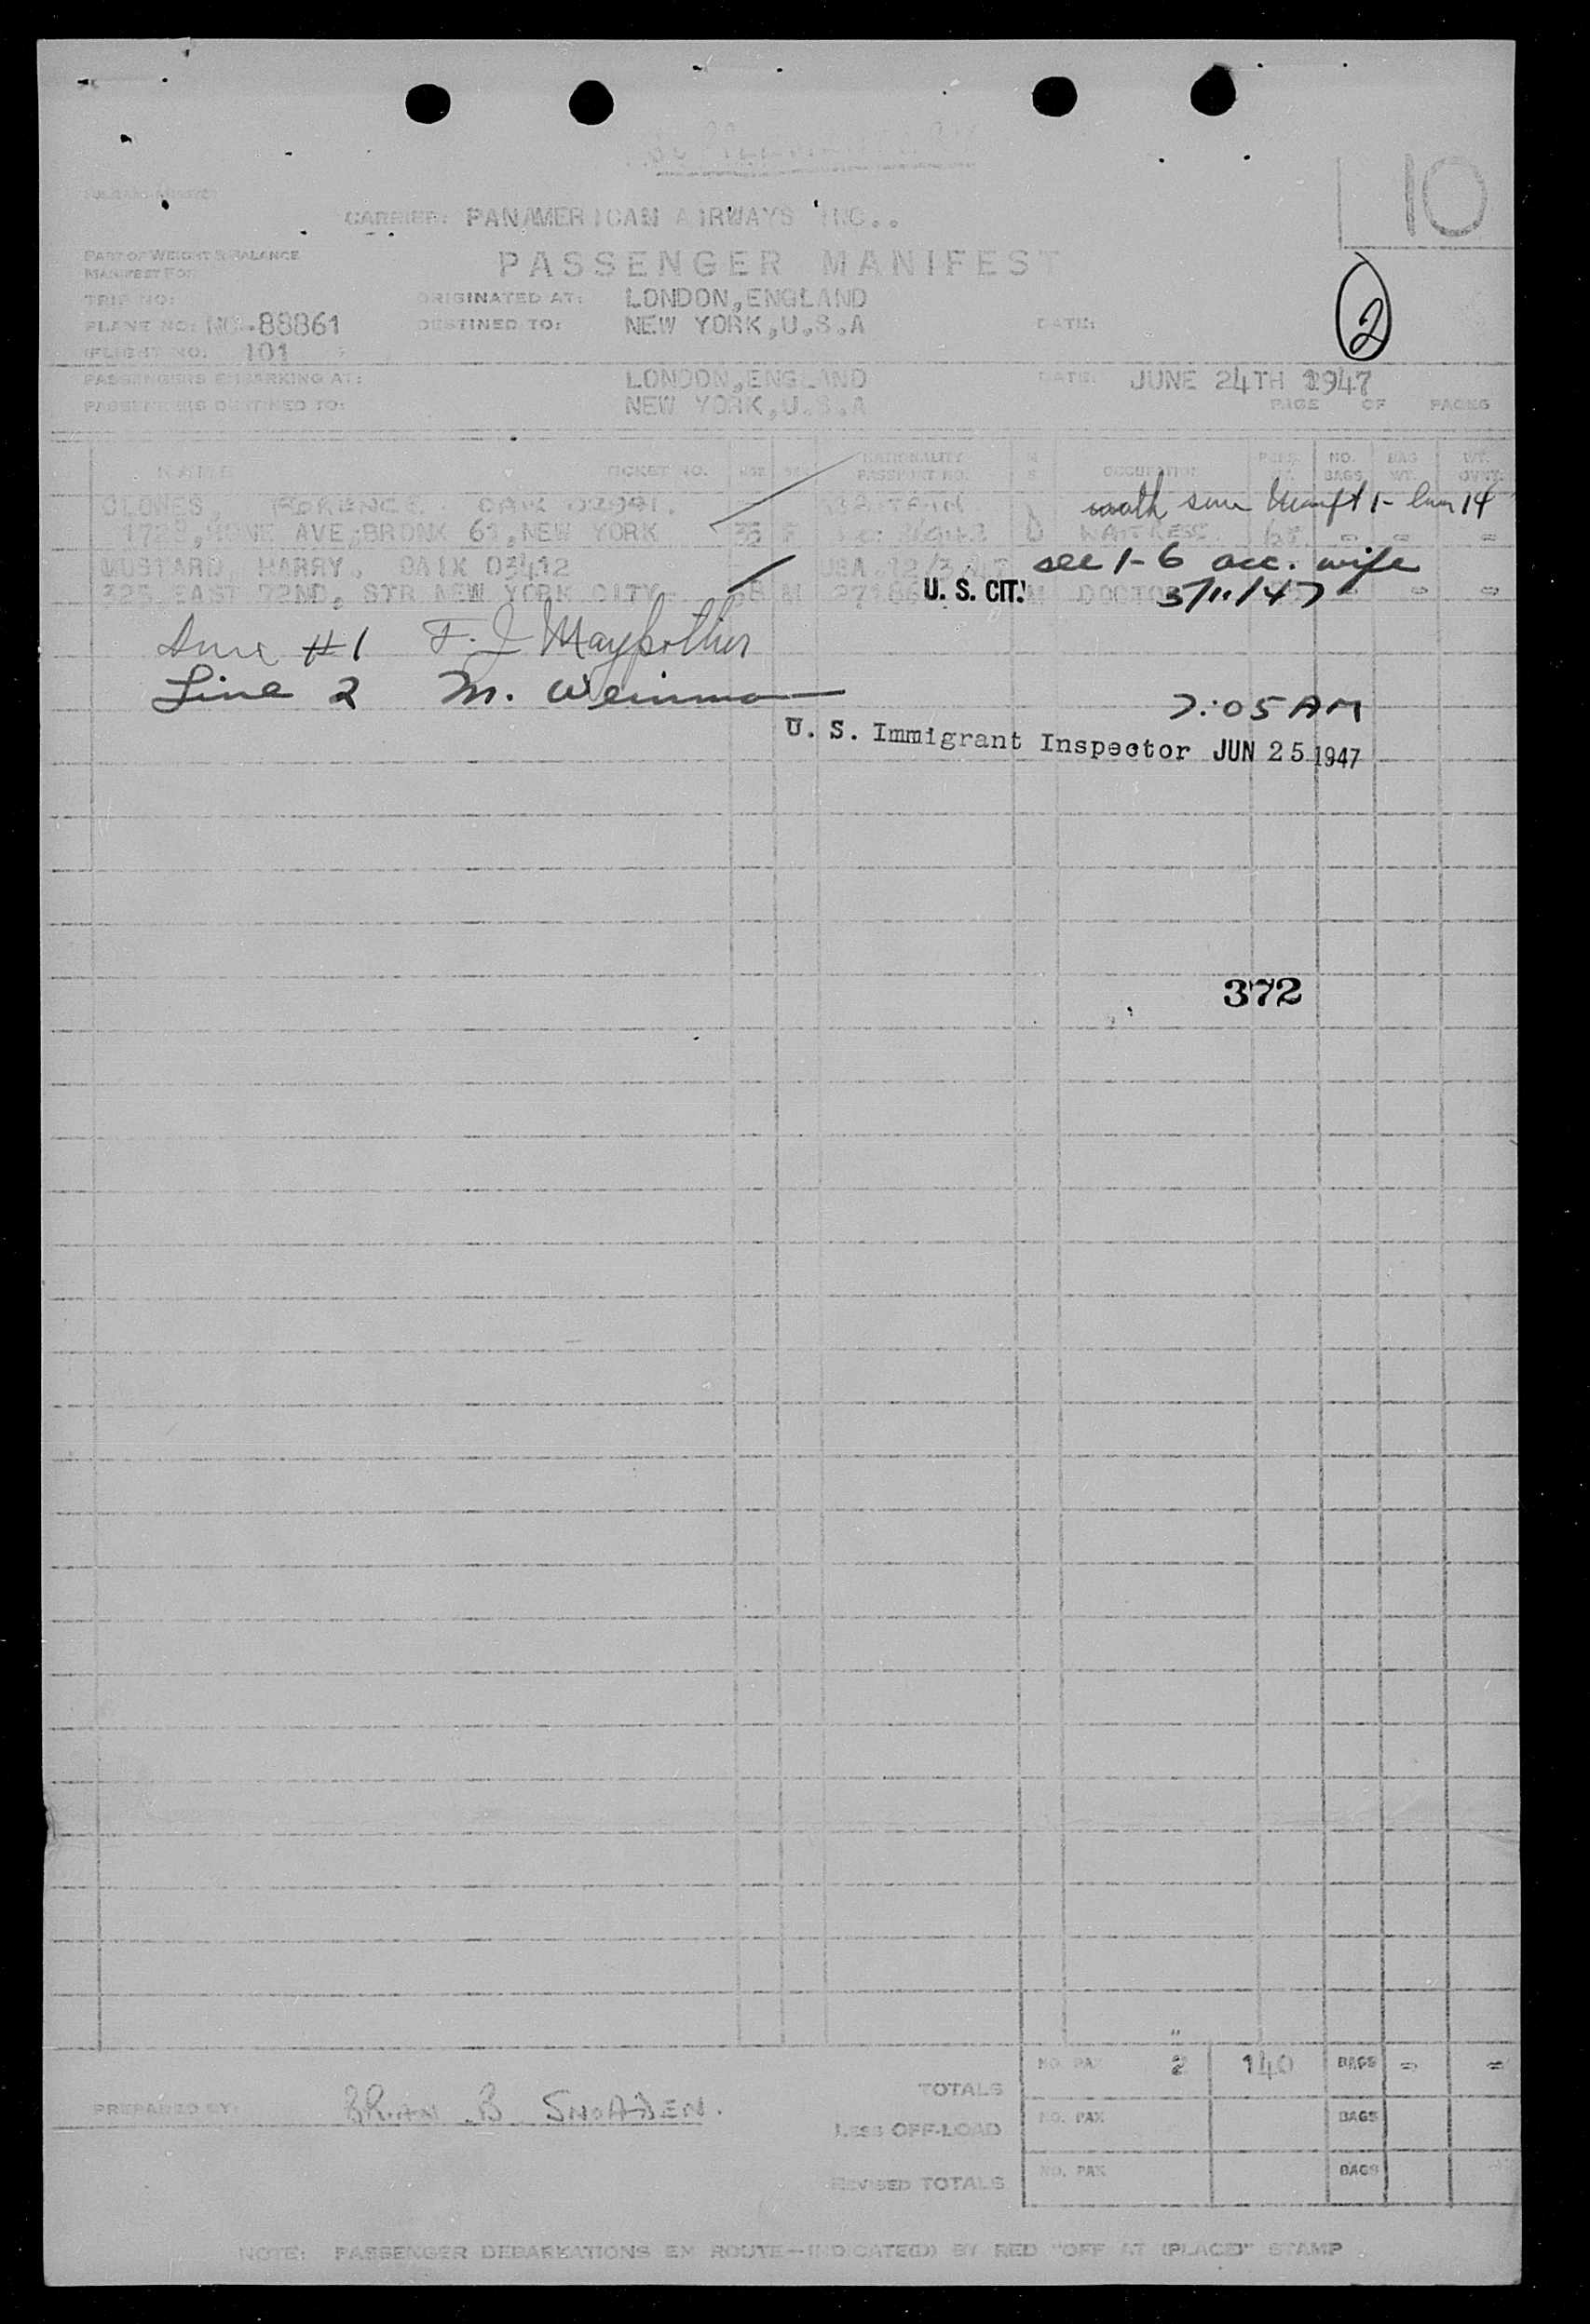 10
CARRIER: PAN AMERICAN AIRWAYS INC..
PART OF WEIGHT & BALANCE
MANIFEST FOR
PASSENGER MANIFEST
TRIP NO:
ORIGINATED AT: LONDON,ENGLAND
PLANE NO: NC.-88861
DESTINED TO: NEW YORK,U.S.A
DATE:
2
FLIGHT NO. 101
PASSENGERS EMBARKING AT: LONDON,ENGLAND
DATE: JUNE 24TH 1947
PASSENGERS DESTINED TO: NEW YORK,U.S.A
PAGE OF PAGES
NAME TICKET NO. AGE SEX NATIONALITY PASSPORT NO. M S OCCUPATION PASS. WT. NO. BAGS BAG WT. WT. OVR.
CLOWES FLORENCE
line 14
AVE,BRONX 61,NEW YORK 35 F D WAITRESS
MUSTARD, HARRY, OAIX 03412 USA see 1-6 acc. wife
325 EAST 72ND, STR NEW YORK CITY M U. S. CIT. M 3/11/47
Line #1 F. J.
Line 2 M.
7:05 AM
U. S. Immigrant Inspector JUN 25 1947
372
TOTALS NO. PAX 2 140 BAGS
PREPARED BY: BRIAN B SNOADEN.
LESS OFF-LOAD NO. PAX BAGS
REVISED TOTALS NO. PAX BAGS
NOTE: PASSENGER DEBARKATIONS EN ROUTE—INDICATE(D) BY RED "OFF AT (PLACE)" STAMP